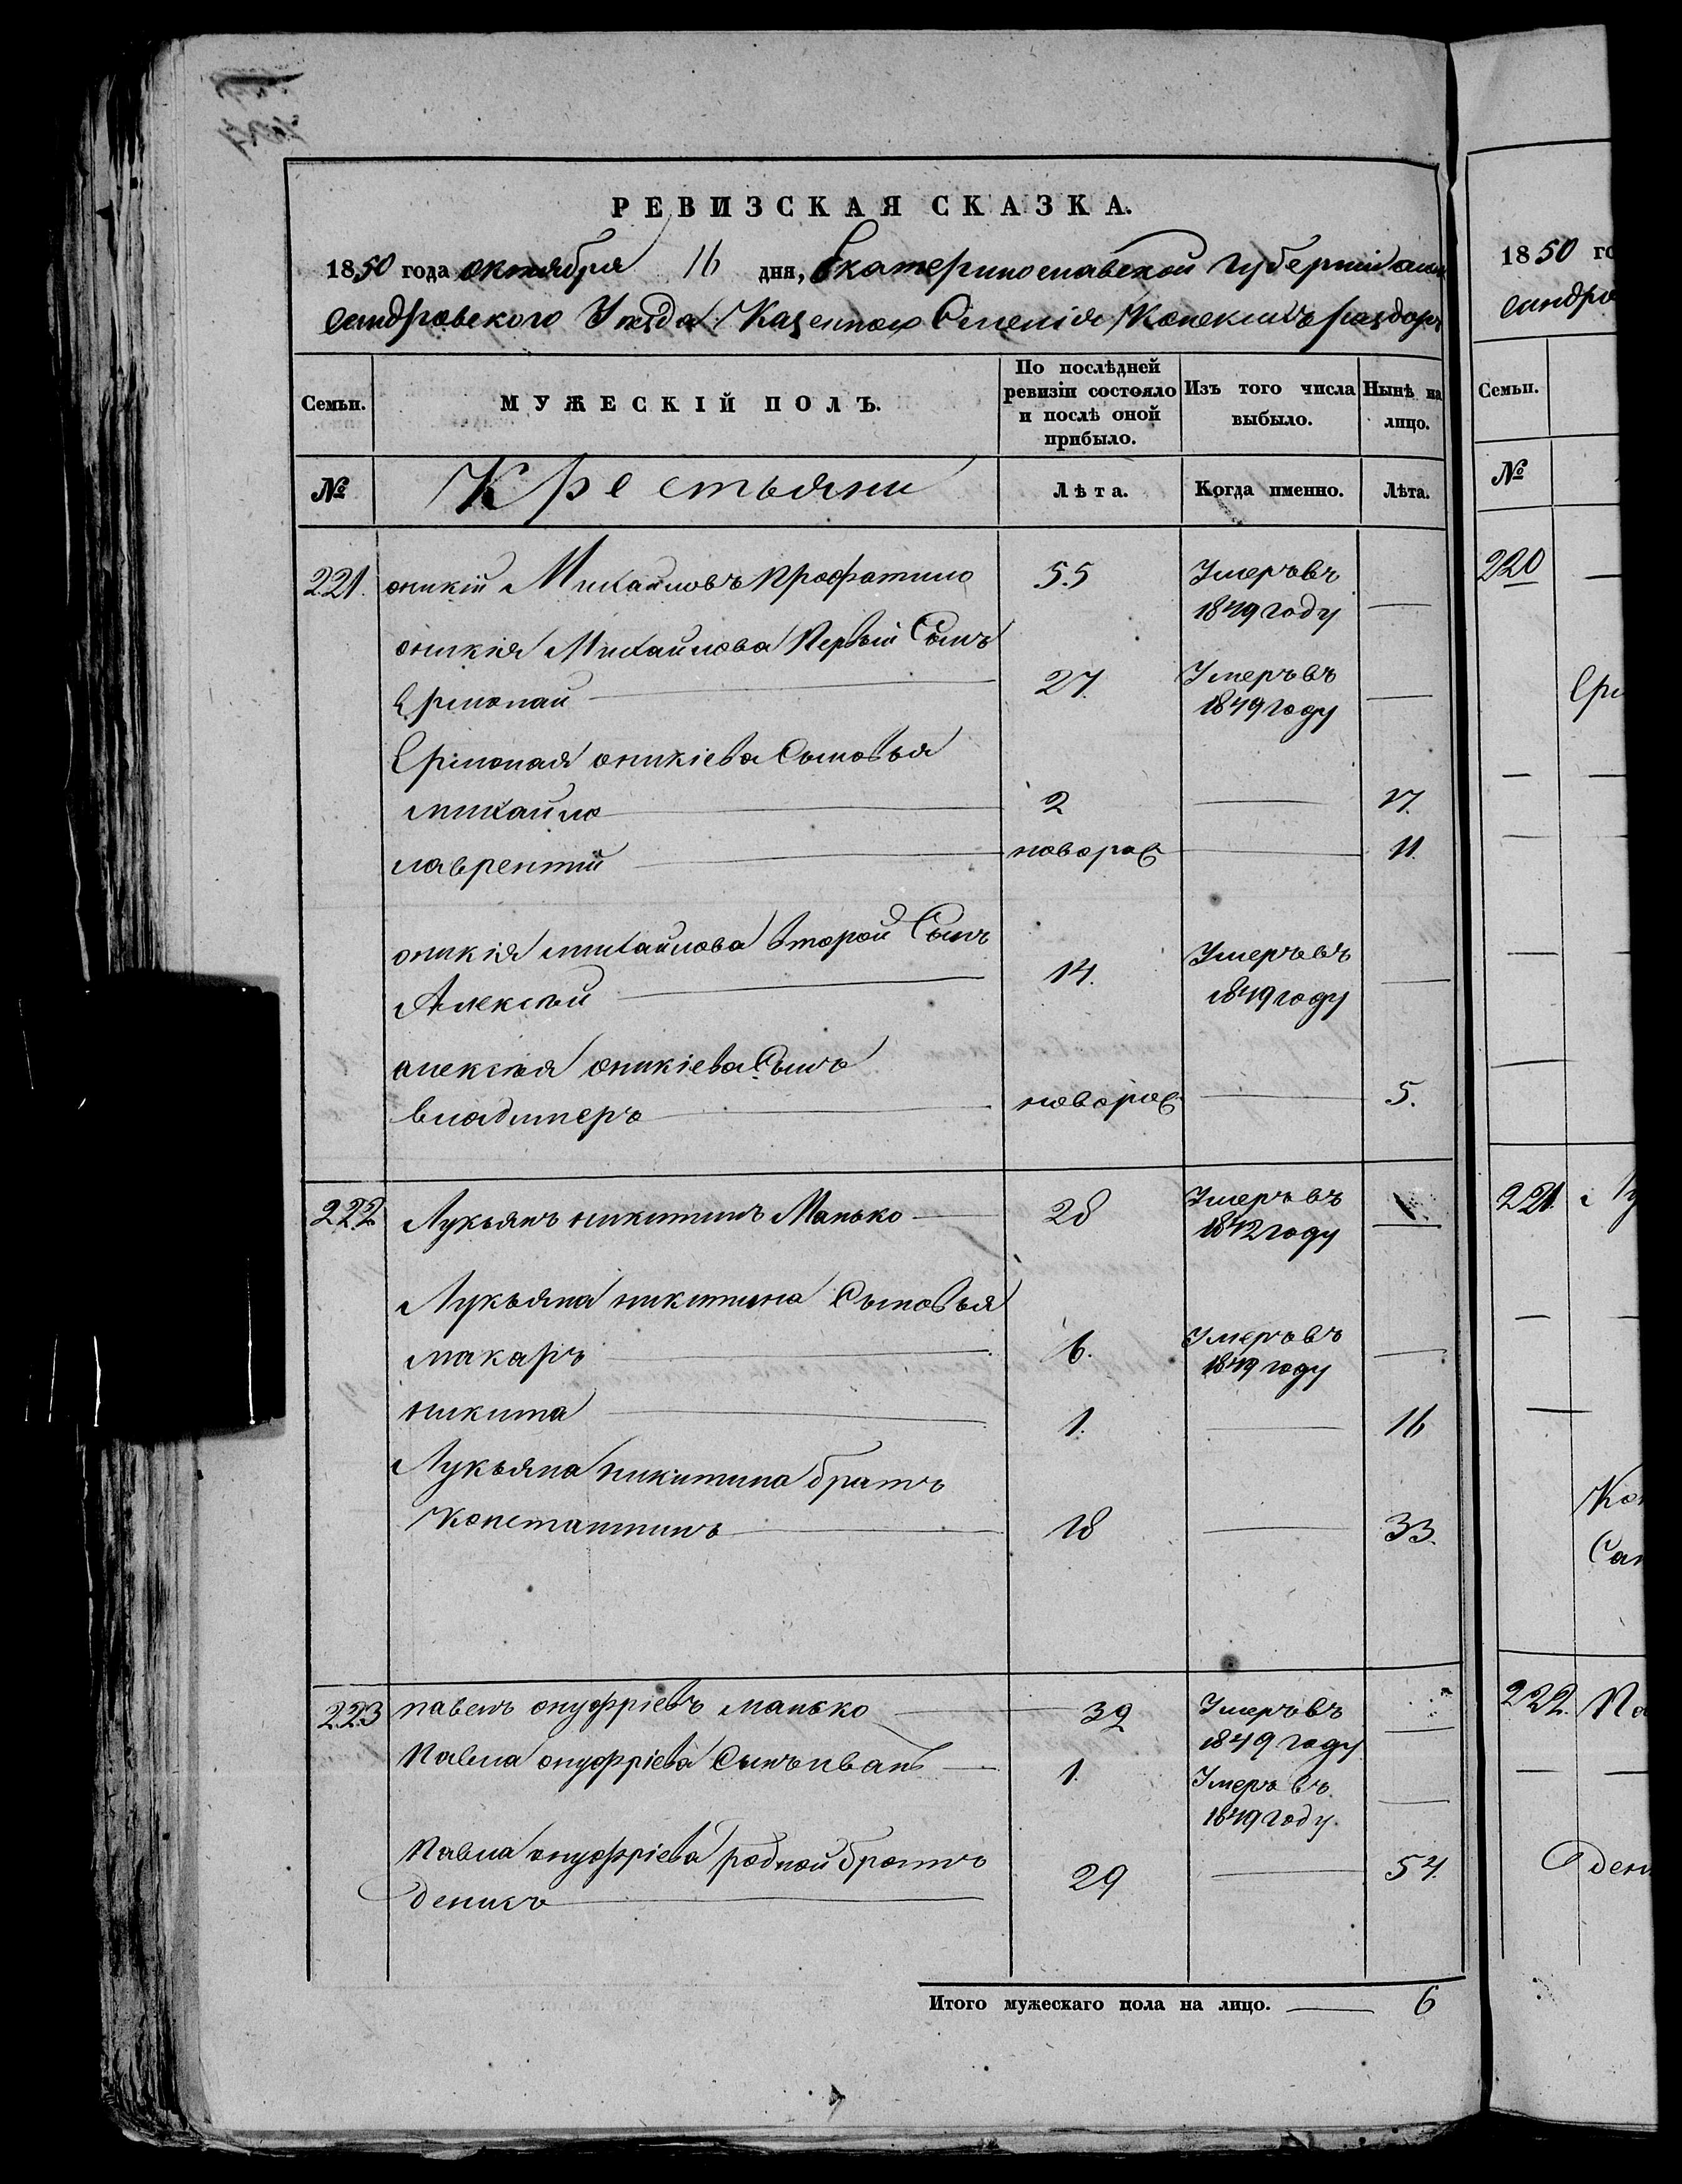 РЕВИЗСКАЯ СКАЗКА.
1850 года октября 16 дня, Екатеринославской Губерніи Алек
сандровского Уезда Казенного Селенія
Семьи.
МУЖЕСКІЙ ПОЛЪ.
По послѣдней ревизіи состояло и послѣ оной прибыло.
Изъ того числа выбыло.
Нынѣ на лицо.
№ Крестьяни Лѣта. Когда именно. Лѣта.
221. оникій Михайловъ 55 Умеръ въ
1849 году —
оникія Михайлова Первый Сынъ
Ермолай — 27. Умеръ въ
1849 году —
Ермолая оникіева Сыновья
михайло — 2 — 17.
лаврентій — новорож — 11.
оникія михайлова второй Сынъ
Алексѣй — 14. Умеръ въ
1849 году —
алексѣя оникіева Сынъ
владимеръ — новорож — 5.
222 Лукьянъ никитинъ Манько — 28 Умеръ въ
1842 году —
Лукьяна никитина Сыновья
макаръ — 6. Умеръ въ
1849 году —
никита — 1. — 16
Лукьяна никитина братъ
Константинъ — 18 — 33.
223 павелъ онуфріевъ манько — 39 Умеръ въ
1849 году —
Павла онуфріева Сынъ иванъ — 1. Умеръ въ
1849 году. —
Павла онуфріева родной братъ
денисъ — 29 — 54.
Итого мужескаго пола на лицо. — 6
1850 го
сандро
Семьи.
№
220
221. Лу
222. Па